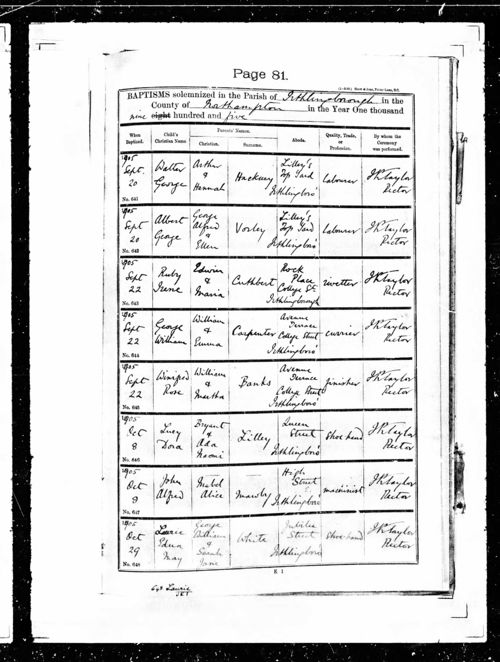 Page 81.
BAPTISMS solemnized in the Parish of Irthlingborough in the
County of Northampton in the Year One thousand
nine eight hundred and five
When Baptized.
Child's Christian Name
Parents' Names.
Christian.
Surname.
Abode.
Quality, Trade, or Profession.
By whom the Ceremony was performed.
1905 Sept. 20 No. 641
Walter George
Arthur & Hannah
Hackney
Lilley's Top Yard Irthlingboro'
Labourer
J R Taylor Rector
1905 Sept 20 No. 642
Albert George
George Alfred & Ellen
Vorley
Lilley's Top Yard Irthlingboro'
Labourer
J R Taylor Rector
1905 Sept 22 No. 643
Ruby Irene
Edwin & Maria
Cuthbert
Rock Place College St. Irthlingborough
rivetter
J R Taylor Rector
1905 Sept 22 No. 644
George William
William & Emma
Carpenter
Avenue Terrace College Street Irthlingboro'
currier
J R Taylor Rector
1905 Sept 22 No. 645
Winifred Rose
William & Martha
Banks
Avenue Terrace College Street Irthlingboro'
finisher
J R Taylor Rector
1905 Oct 8 No. 646
Lucy Dora
Bryant & Ada Naomi
Lilley
Queen Street Irthlingboro'
Shoe hand
J R Taylor Rector
1905 Oct 8 No. 647
John Alfred
Mabel Alice
Mawby
High Street Irthlingboro'
machinist
J R Taylor Rector
1905 Oct 29 No. 648
Edna May
George William & Sarah Jane
White
Jubilee Street Irthlingboro'
Shoe hand
J R Taylor Rector
K 1
648 Laurie
JRT